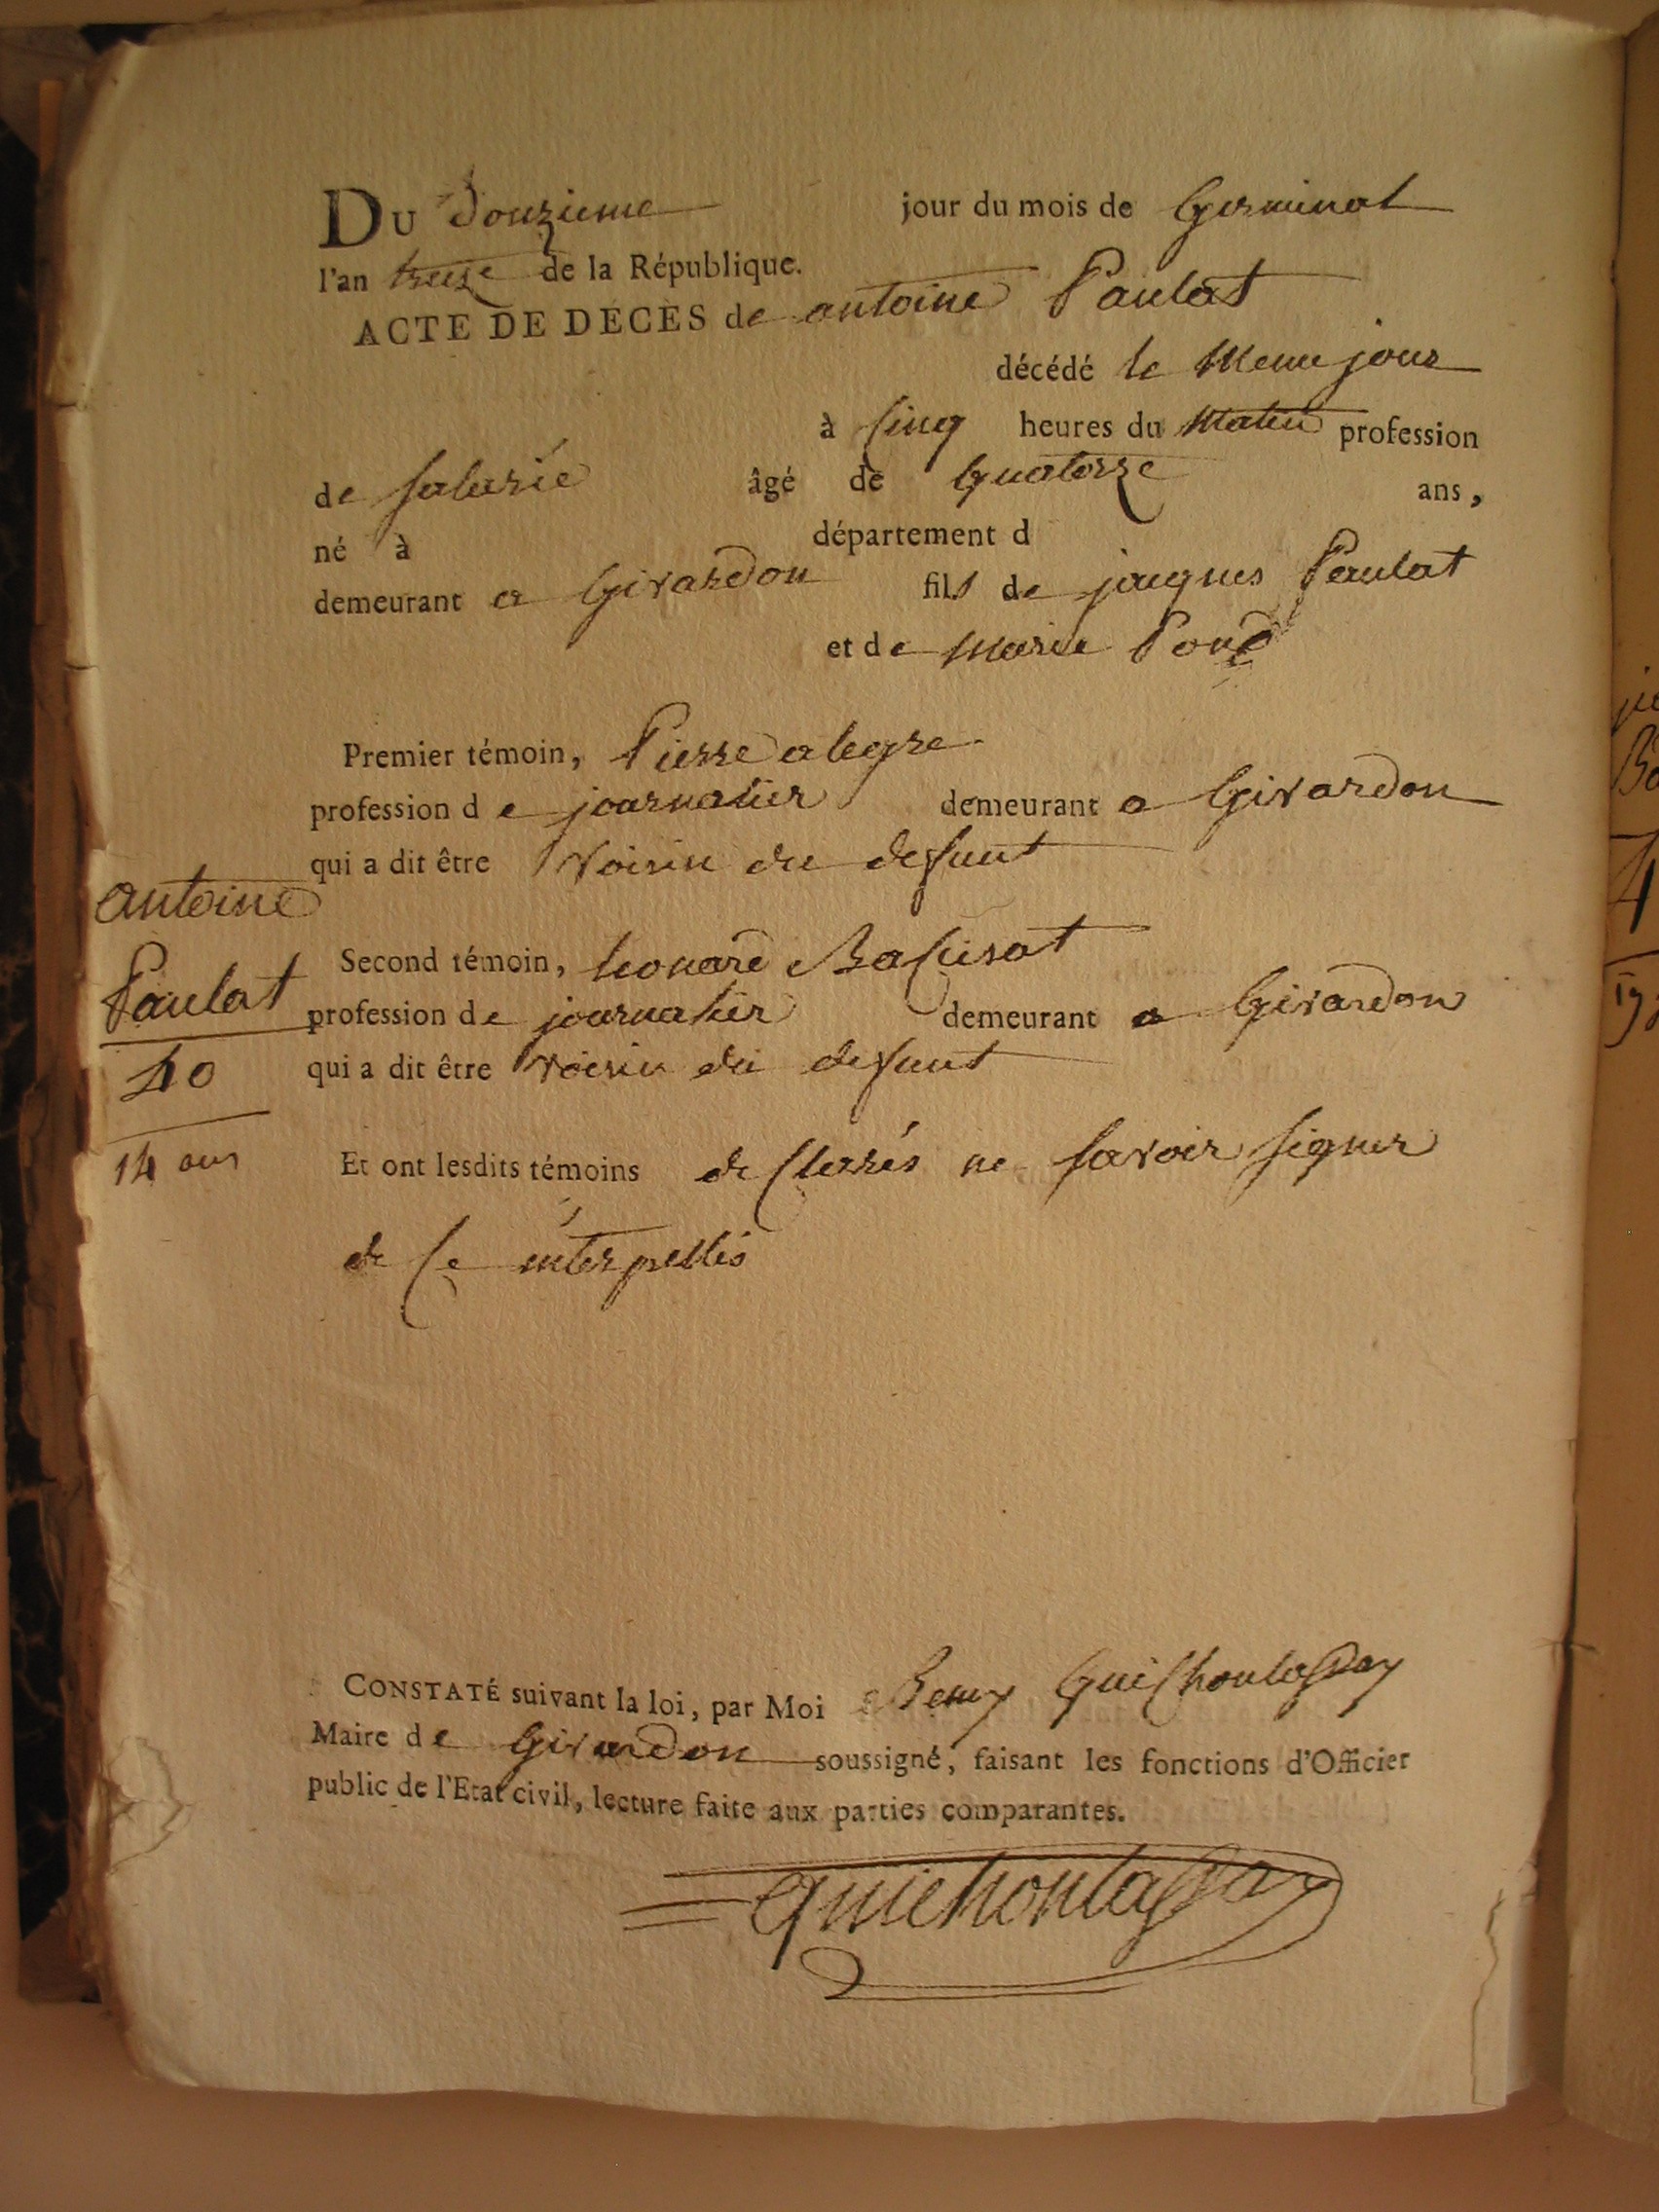 DU Douzieme jour du mois de Germinal
l'an treize de la République.
ACTE DE DÉCÈS de antoine Paulat
décédé le meme jour
à Cinq heures du matin profession
de salarié âgé de quatorze ans,
né à département d
demeurant a Givardon fils de jaques Paulat
et de marie
Premier témoin, Pierre alegre
profession de journalier demeurant a Givardon
qui a dit être Voisin du defunt
antoine
Paulat
40
14 ans
Second témoin, leonard
profession de journalier demeurant a Givardon
qui a dit être voisin du defunt
Et ont lesdits témoins de Clarés ne savoir signer
de Ce interpellés
CONSTATÉ suivant la loi, par Moi Remy
Maire de Givardon soussigné, faisant les fonctions d'Officier
public de l'Etat civil, lecture faite aux parties comparantes.